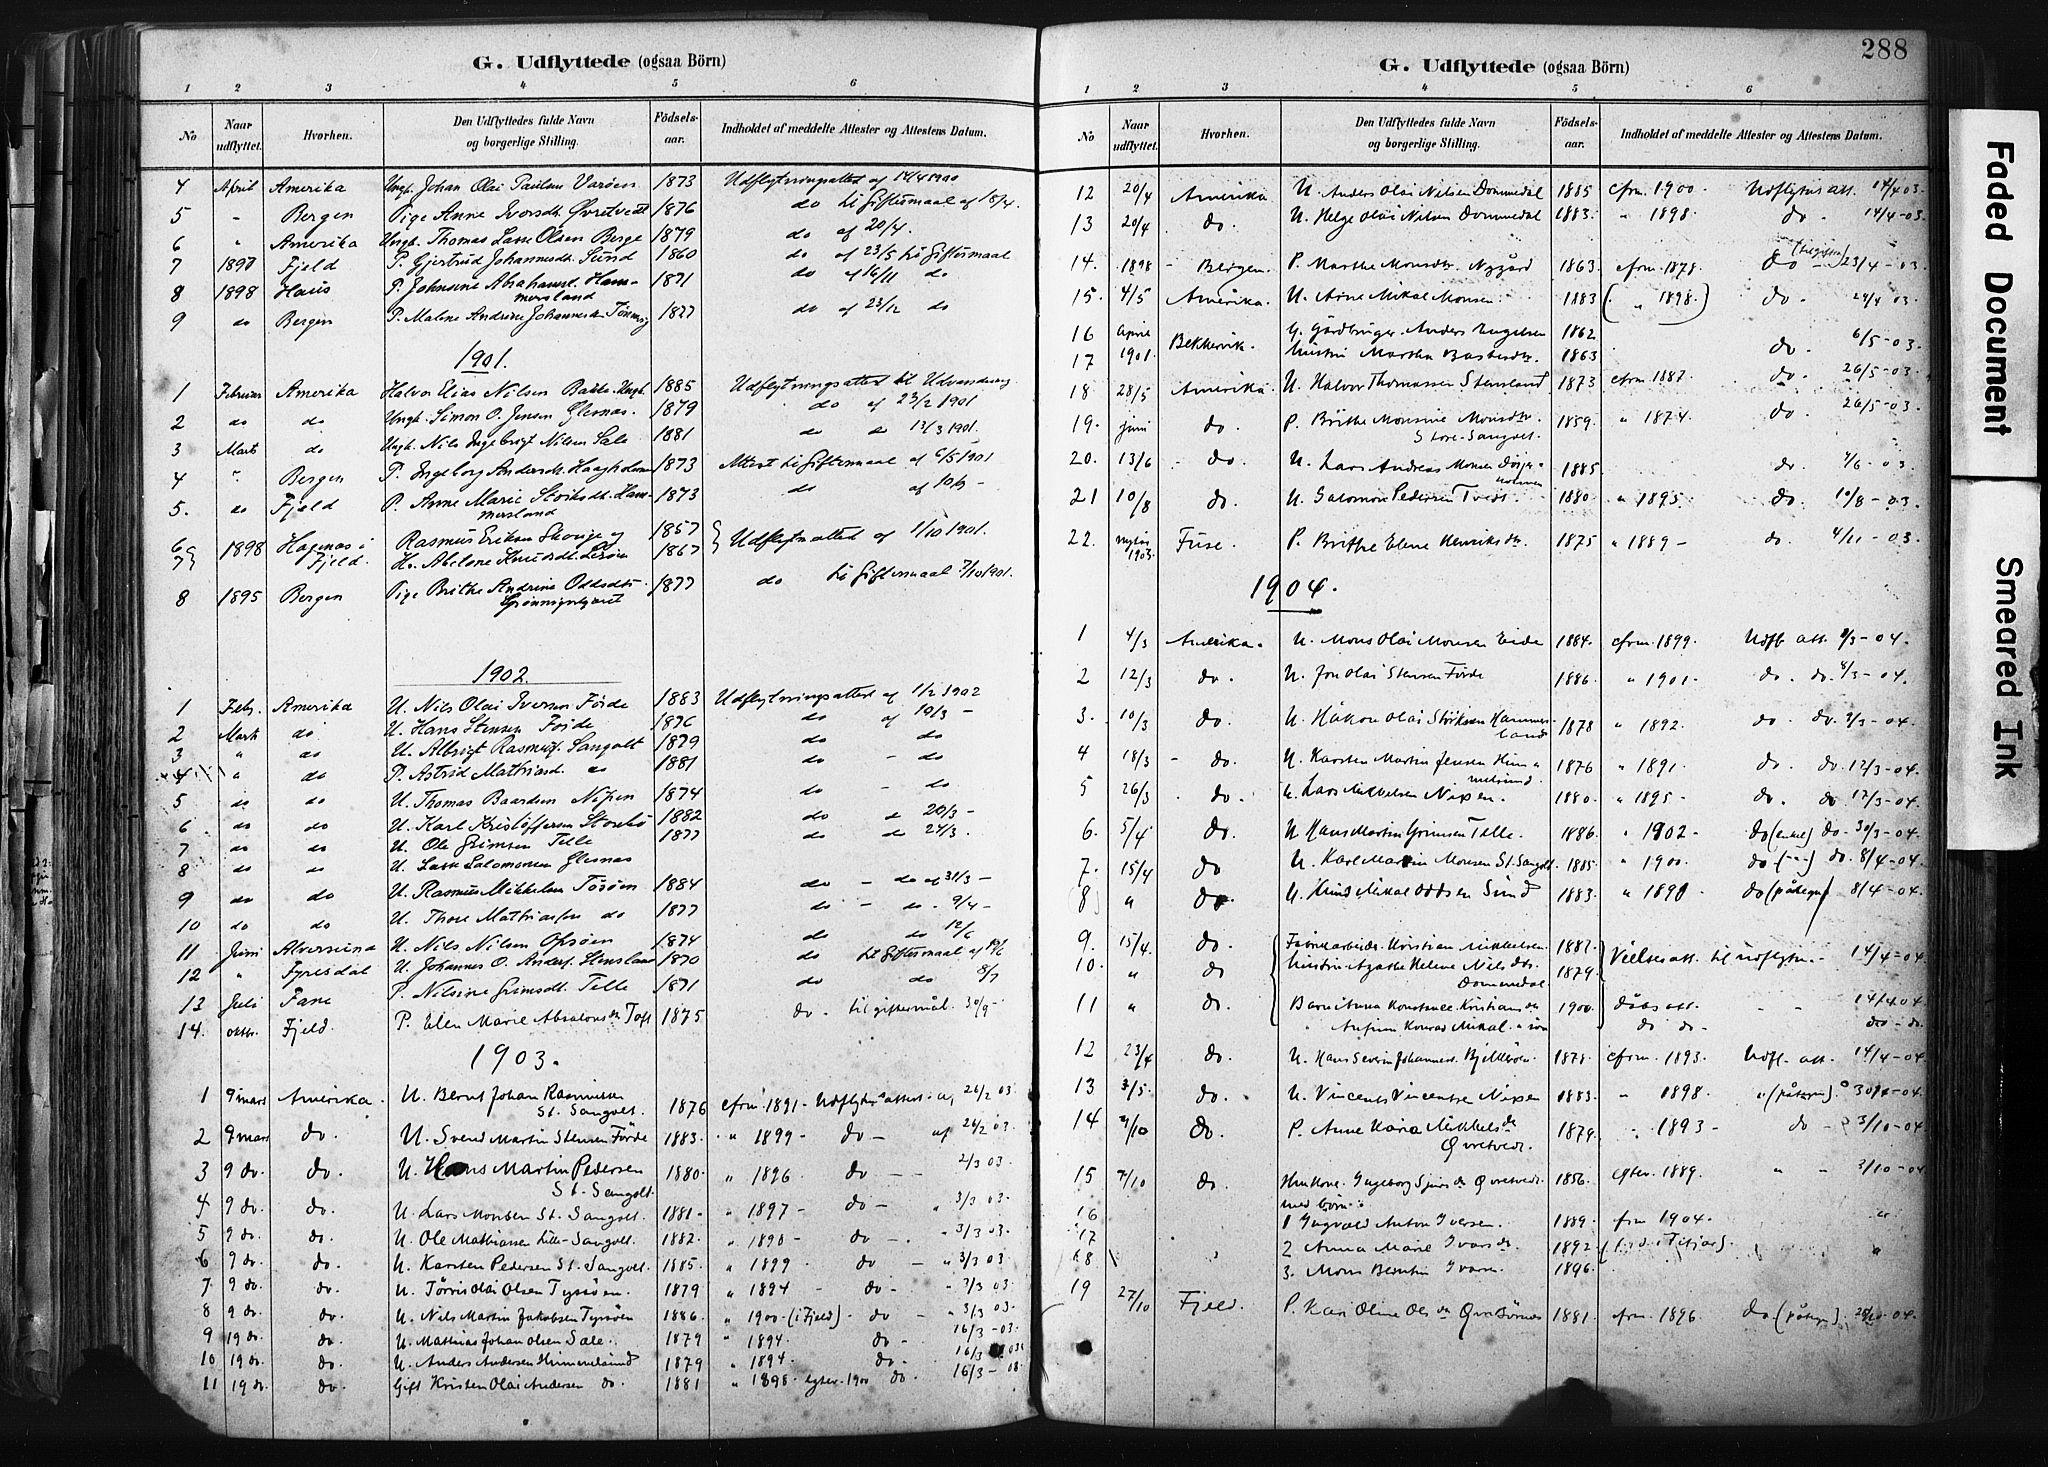 G. Udflyttede (ogsaa Börn)
1 2 3 4 5 6
No Naar udflyttet. Hvorhen. Den Udflyttedes fulde Navn og borgerlige Stilling. Födsels-aar. Indholdet af meddelte Attester og Attestens Datum.
4 April Amerika Ungk. Johan Olai Paulsen Varöen 1873 Udflytningsattest af 14/4 1900
5 " Bergen Pige Anne Iversdt. Övretvedt 1876 do til Giftermaal af 18/4.
6 " Amerika Ungk. Thomas Lasse Olsen Berge 1879 do af 20/4.
7 Fjeld P. Gjertrud Johannesdt. Sund 1860 do af 23/5 til Giftermaal
8 1898 Haus P. Johnsine Abrahamsd. Hammersland 1871 do af 16/11 do
9 do Bergen P. Malene Andrine Johannesdt. 1877 do af 23/12 do
1901.
1 Februar Amerika Halvor Elias Nilsen Bakke Ungk. 1885 Udflytningsattest til Udvandring
2 do do Ungk. Simon O. Jensen Glesnæs. 1879 do af 23/2 1901
3 Marts do Ungk. Nils Ingebrigt Nilsen Sæle 1881 do do 13/3 1901.
4 " Bergen P. Ingeborg Andersdt. Haagholmen 1873 Attest til Giftermaal af 6/5 1901
5. do Fjeld P. Anne Marie Störksdt. Hammersland 1873 do af 10/9 -
6 1898 Hagenæs i Rasmus Eriksen Skorge og 1857 Udflytn.attest af 1/10 1901.
7 Fjeld. H. Abelone Knudsdt. 1867
8 1895 Bergen Pige Brithe Andrine Oddsdt. 1877 do til Giftermaal 7/10 1901.
1902.
1 Feby. Amerika U. Nils Olai Iversen Förde 1883 Udflytningsattest af 1/2 1902
2 Marts do U. Hans Stensen Förde 1876 do af 19/3 -
3 " do U. Albrigt Rasmus. Sangolt 1879 do do
4 " do P. Astrid Mathiasd. do 1881 do - do
5 do do U. Thomas Baardsen Nipen 1874 do - do
6 do do U. Karl Kristoffersen Storebö 1882 do do 20/3 -
7 do do U. Ole Grimsen Telle 1877 do do 24/3.
8 do do U. Lasse Salomonsen Glesnæs
9 do do U. Rasmus Mikkelsen Tösöen 1884 do - do af 31/3 -
10 do do U. Thore Mathiassen do 1877 do - do. 9/4 -
11 Juni Alversund U. Nils Nilsen Ofsöen 1874 do do 12/6
12 " Fyresdal U. Johannes O. Anders. Stensland 1870 do til Giftermaal af 19/6
13 Juli Fane P. Nilsine Grimsdt. Telle 1871 do do 8/7
14. oktbr. Fjeld. P. Elen Marie Absalonsdr Toft 1875 do. til giftermål 30/9 -
1903.
1 9 mars Amerika. U. Bernt Johan Rasmussen St. Sangolt. 1876 cfrm. 1891 - Udflytns attest. af 26/2 03.
2 9 mars do. U. Svend Martin Stensen Förde 1883. " 1899 - do - af 26/2 03.
3 9 do. do. U. Hans Martin Pedersen St. Sangolt. 1880. " 1896 - do - 2/3 03.
4 9 do. do. U. Lars Monsen St. Sangolt. 1881 - " 1897 - do - " 3/3 03
5 9 do. do. U. Ole Mathiassen Lille-Sangolt. 1882. " 1898 - do - " 3/3 03.
6 9 do. do. U. Karsten Pedersen St. Sangolt. 1885. " 1899 - do - " 3/3 03
7 9 do. do. U. Törris Olai Olsen Tyssöen. 1879 " 1894 - do - " 3/3 03.
8 9 do. do. U. Nils Martin Jakobsen Tyssöen 1886. " 1900 - (i Fjeld) - do - " 3/3 03.
9 19 do. do. U. Mathias Johan Olsen Sæle. 1879 " 1894. do - 16/3 - 03.
10 19 do. do. U. Anders Andersen Himmelsund 1879 " 1894. do. 16/3 03
11 19 do. do. Gift Kristen Olai Andersen do. 1881 " 1898 egtev. 1900 do. 16/3 - 03.
288
G. Udflyttede (ogsaa Börn)
1 2 3 4 5 6
No Naar udflyttet. Hvorhen. Den Udflyttedes fulde Navn og borgerlige Stilling. Födsels-aar. Indholdet af meddelte Attester og Attestens Datum.
12 20/4 Amerika U. Anders Olai Nilsen Dommedal 1885 cfrm. 1900. Udflytns att. 14/4 03.
13 20/4 do. U. Helge Olai Nilsen Dommedal 1883. " 1898. do. 14/4 - 03.
14. 1898 - Bergen. P. Marthe Monsdtr. Nygård 1863 cfrm. 1878. do - 23/4 - 03.
15. 4/5 Amerika. U. Arne Mikal Monsen. 1883 ( " 1898.) do. 24/4 03.
16 April Bekkervik. G. Gårdbruger Anders Engelsen 1862 6/5 - 03.
17 1901. hustru Martha Bastesdtr. 1863 do.
18 28/5 Amerika U. Halvor Thomassen Stensland 1873 cfrm. 1887. do. 26/5 - 03.
19. juni do. P. Brithe Monsine Monsdtr. Store-Sangolt. 1859. " 1874. do. 26/5 - 03.
20. 13/6 - do. U. Lars Andreas Monsen 1885. do. 4/6 - 03.
21 10/8 do. U. Salomon Pedersen Tvedt. 1880. " 1895. do. 10/8 - 03.
22. 1903. Fuse. P. Brithe Elene Henriksdtr. 1875 " 1889 - do. 4/11 - 03.
1904.
1 4/3 Amerika. U. Mons Olai Monsen Eide 1884. cfrm. 1899. Udfl. att. 2/3 - 04.
2 12/3 do. U. Jon Olai Stensen Förde 1886. " 1901. do. do. 4/3 - 04.
3. 10/3 do. U. Håkon Olai Störksen Hammersland 1878 " 1892. do. do. 9/3 - 04.
4 18/3 - do. U. Karsten Martin Jensen Himmelsund. 1876 " 1891. do. do. 12/3 - 04.
5 26/3 do. U. Lars Mikkelsen Nipen. 1880. " 1895 - do. do. 17/3 - 04.
6. 5/4 do. U. Hans Martin Grimsen Telle. 1886. " 1902 - do (enkel) do. 30/3 - 04.
7. 15/4 do U. Karl Martin Monsen St. Sangolt. 1885. " 1900. do (--) do. 8/4 - 04.
8 " do. U. Mikal Oddsen Sund 1883. " 1898 do (påtegn) 8/4 - 04.
9. 15/4. do. Fabrikarbeider Kristian Mikkelsen. 1882. Vielsesatt. til udflytn. - 14/4 - 04.
10. " do hustru Agathe Helene Nilsdtr. Dommedal. 1879.
11 " do. Barn Anna Konstance Kristiansdr 1900. dåbsatt. - - 14/4 04
" Konrad Mikal " sön do do - do - do.
12 23/4 do. U. Hans Severin Johannes. Bjelkeröen. 1878. cfrm. 1893. Udfl. att. 14/4 - 04.
13 3/5. do. U. Vincents Vincentsen Nipen 1883. " 1898 " (påtegn) 30/4 - 04.
14 7/10 do. P. Anne Karia Mikkelsdr Övretvedt. 1879. " 1893 - do - 3/10 - 04
15 7/10 do Huskone. Ingeborg Sjursdr Övretvedt. 1856. egtev. 1889. " - 3/10 - 04
med börn:
16 1 Ingvald Anton Iversen. 1889. frm 1904. "
17 2 Anna Marie Iversdr. 1892
18 3. Mons Berntin Ivers. 1896.
19 27/10 Fjeld. P. Kari Oline Olsdr 1881. cfrm. 1896 do (påtegn)
Faded Document
Smeared Ink